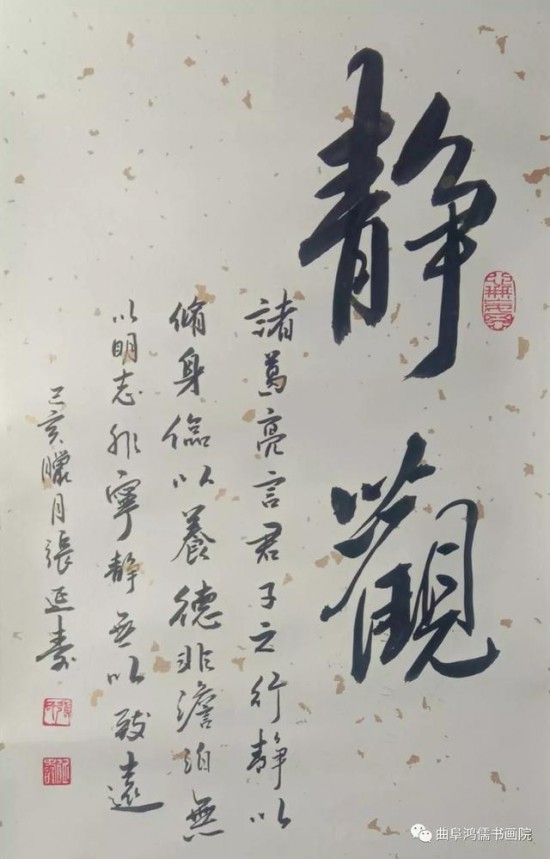 靜觀
諸葛亮言君子之行靜以
脩身儉以養德非澹泊無
以明志非寧靜無以致遠
己亥臘月張延壽
曲阜鸿儒书画院